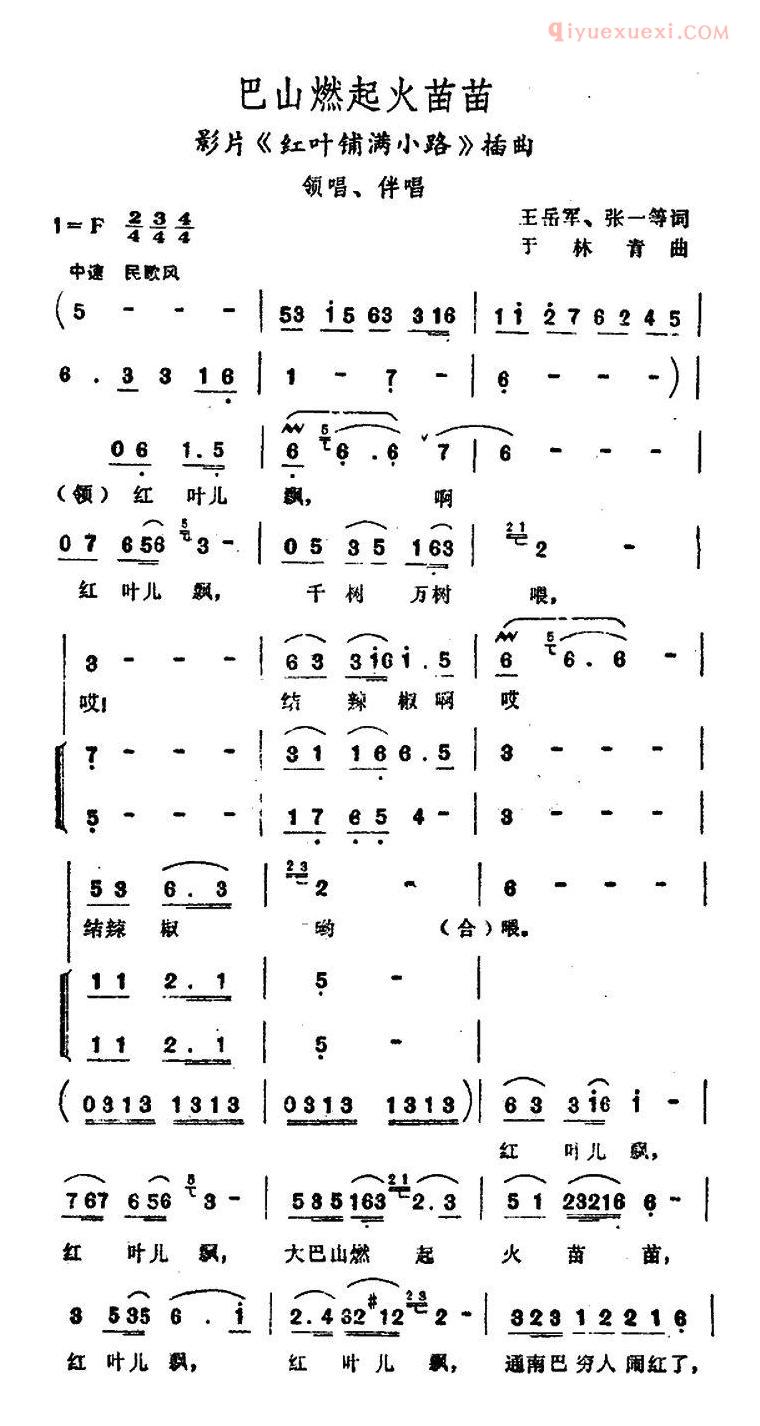 qiyuexuexi.com
巴山燃起火苗苗
影片《红叶铺满小路》插曲
领唱、伴唱
1=F 2/4 3/4 4/4
王岳军、张一等词
于林青曲
中速 民歌风
(5 - - - | 53 i5 63 316 | 1i 27 62 45
6 . 3 3 16 | 1 - 7 - | 6 - - - )|
06 1.5 | 6 5 6 . 6 7 | 6 - - -
(领)红 叶儿 飘, 啊
07 656 5 3 - | 05 35 163 | 21 2 -
红 叶儿 飘, 千 树 万树 喂,
3 - - - | 63 3i6 i . 5 | 6 5 6 . 6
哎! 结 辣 椒啊 哎
7 - - - | 31 16 6 . 5 | 3 - -
5 - - - | 17 65 4 - | 3 - -
53 6 . 3 | 23 2 - | 6 - - -
结辣 椒 哟 (合)喂。
11 2 . 1 | 5 - |
11 2 . 1 | 5 - |
(0313 1313 | 0313 1313)| 63 3i6 i - |
红 叶儿 飘,
767 656 5 3 - | 535163 21 2.3 | 51 23216 6 - |
红 叶儿 飘, 大巴山燃 起 火 苗 苗,
3 535 6 . i | 2.4 32 #12 23 2 - | 323 12 221 6
红 叶儿 飘, 红 叶儿 飘, 通南巴 穷人 闹红了,